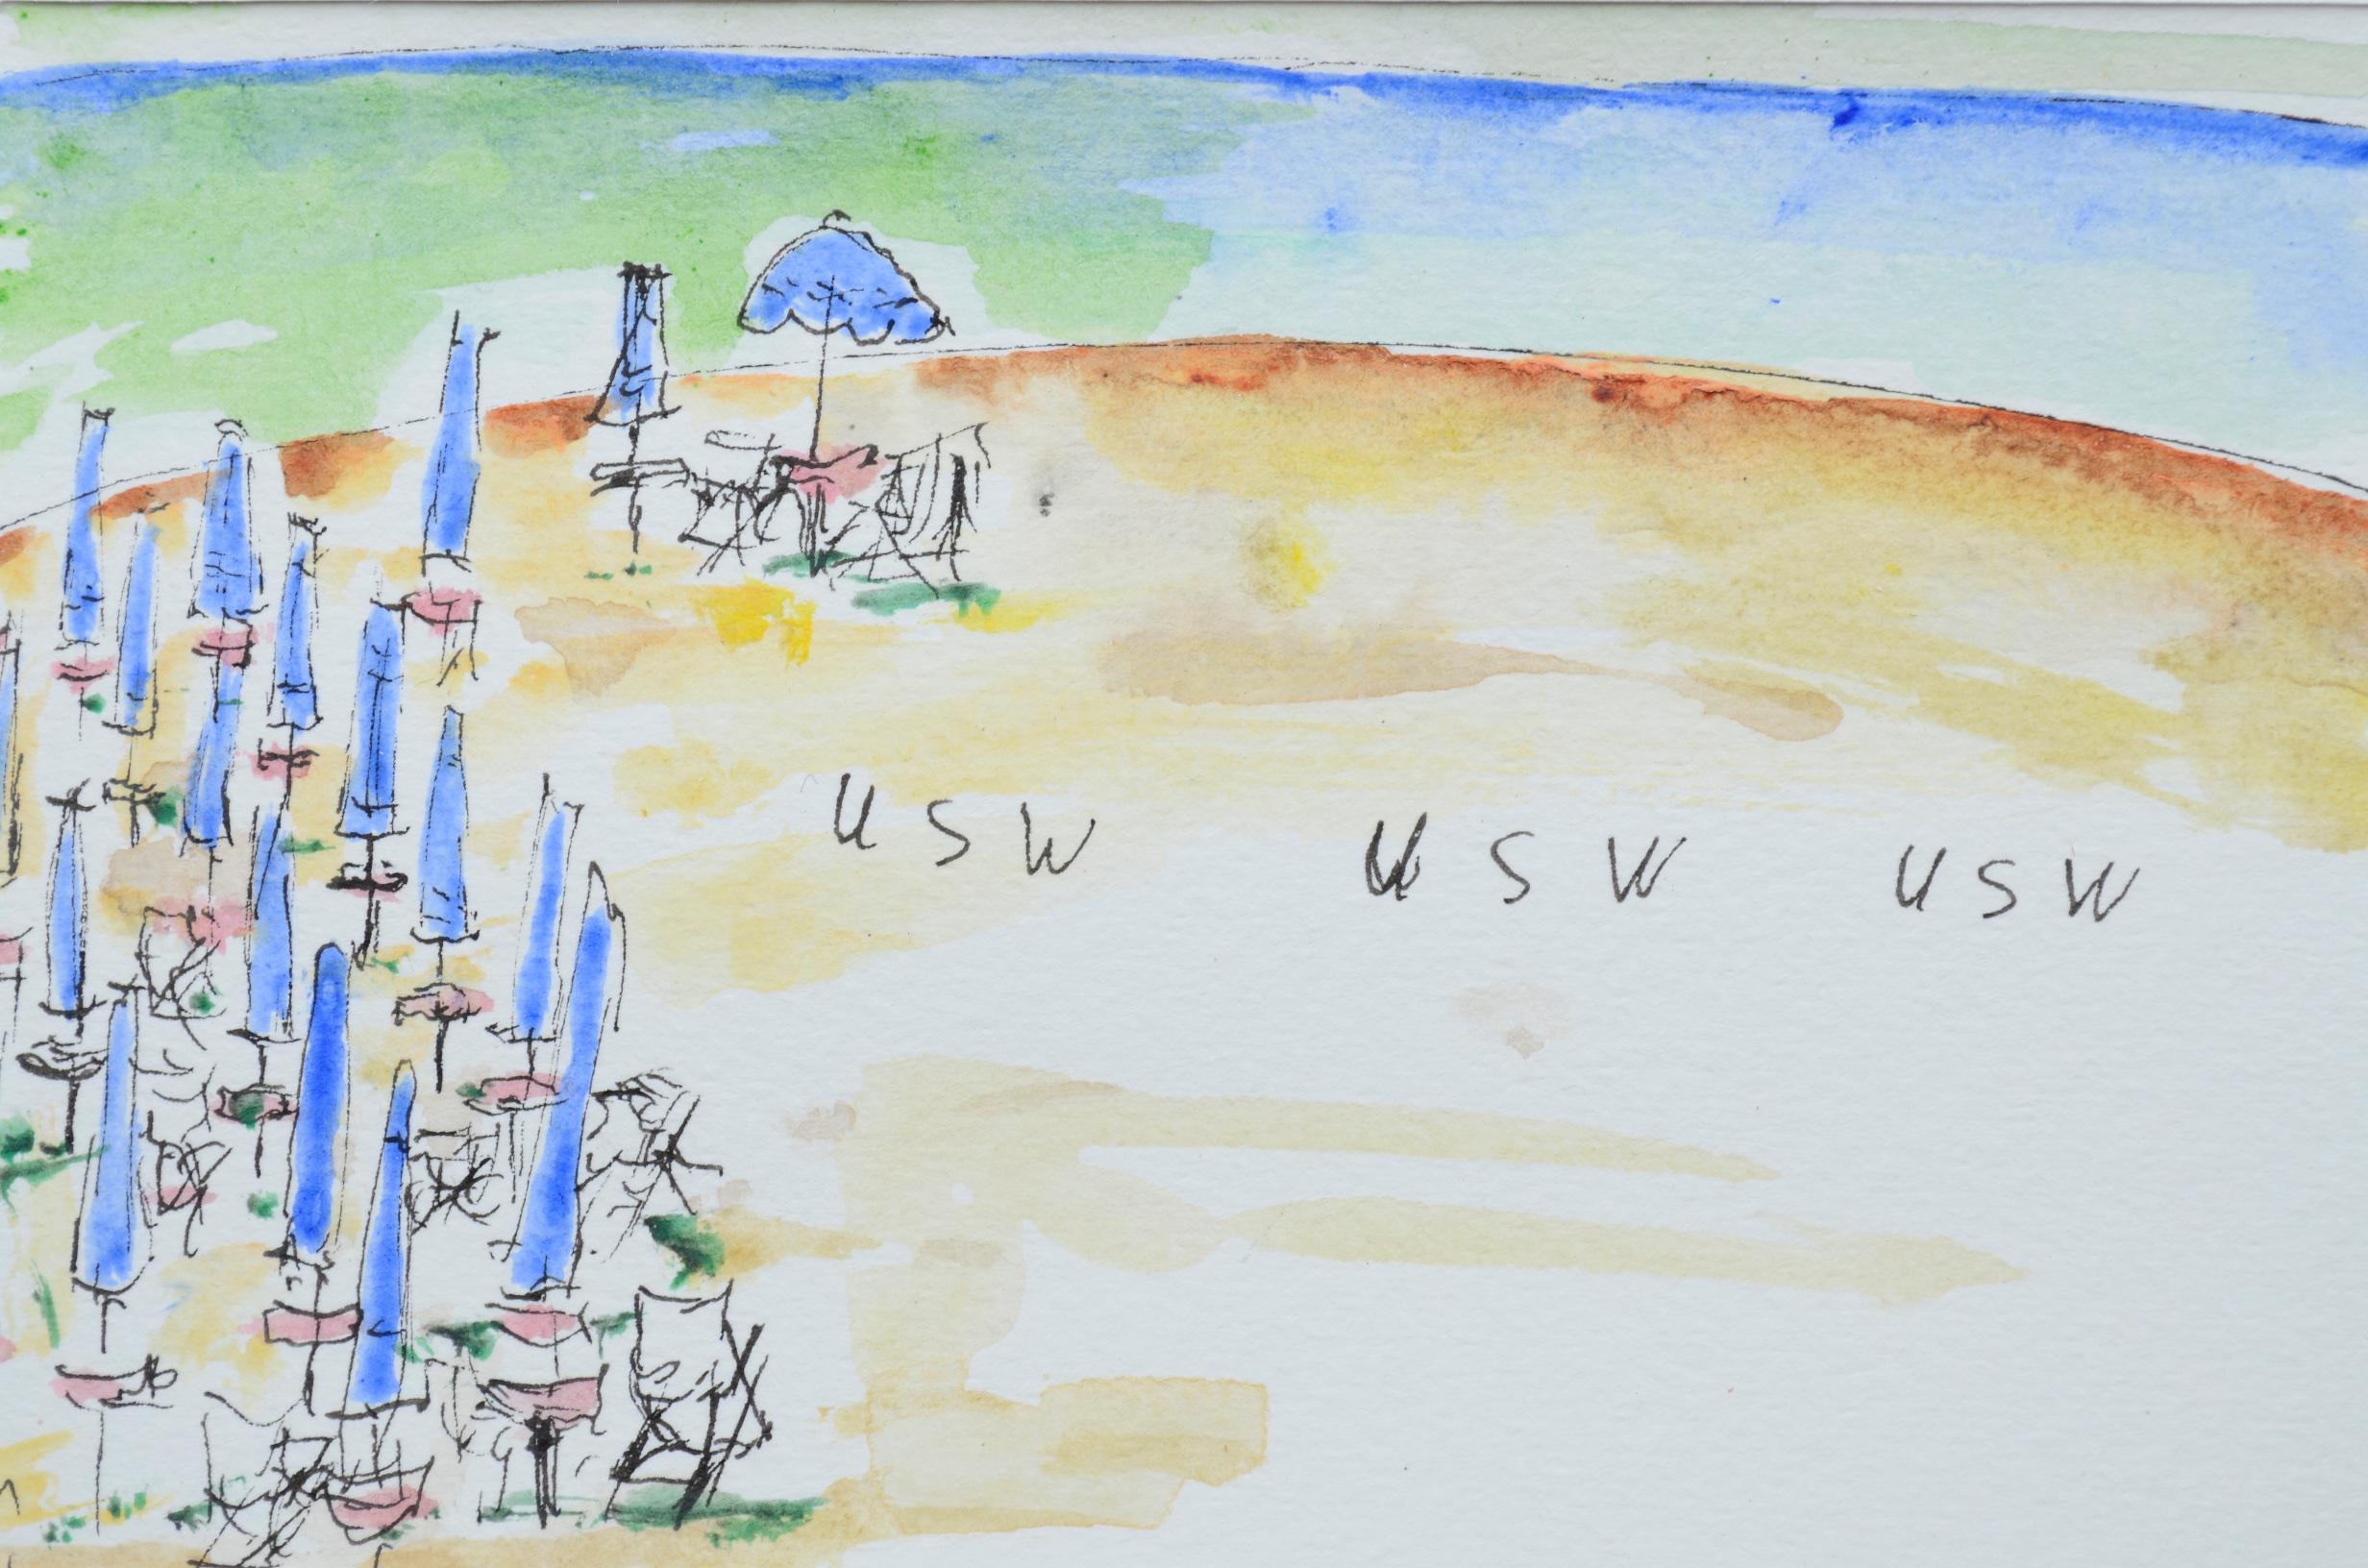 USW USW USW